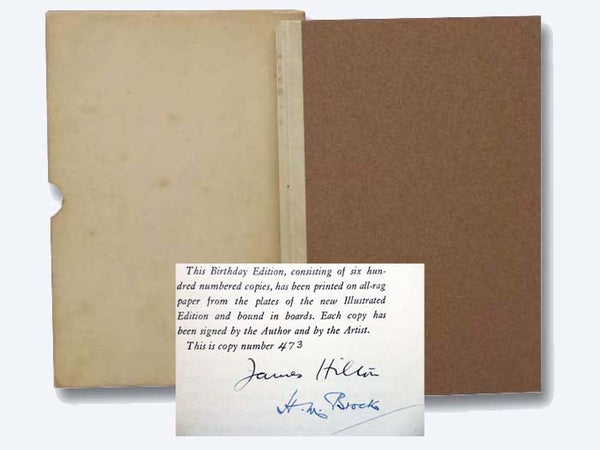 This Birthday Edition, consisting of six hun-
dred numbered copies, has been printed on all-rag
paper from the plates of the new Illustrated
Edition and bound in boards. Each copy has
been signed by the Author and by the Artist.
This is copy number 473
James Hilton
H. M. Brock